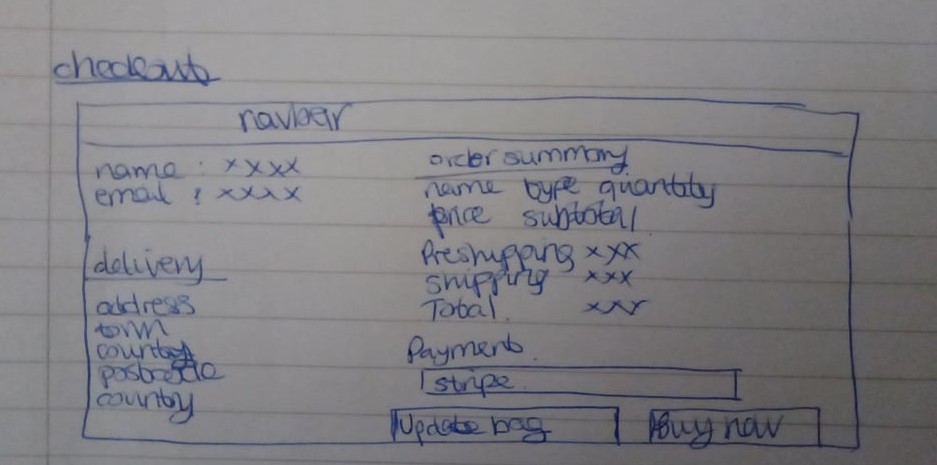 checkout
navbar
name : xxxx
email : xxxx
delivery
address
town
county
postcode
country
order summary
name type quantity
price subtotal
Preshipping xxx
shipping xxx
Total xxx
Payment
stripe
Update bag
Buy now